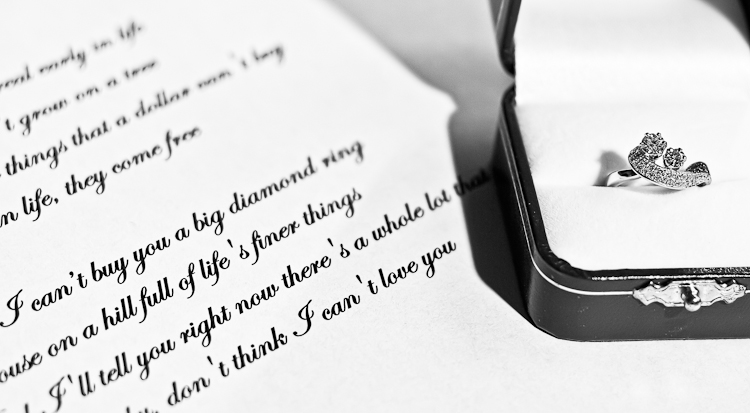 early in life
't grow on a tree
things that a dollar can't buy
in life, they come free
I can't buy you a big diamond ring
on a hill full of life's finer things
I'll tell you right now there's a whole lot that
don't think I can't love you